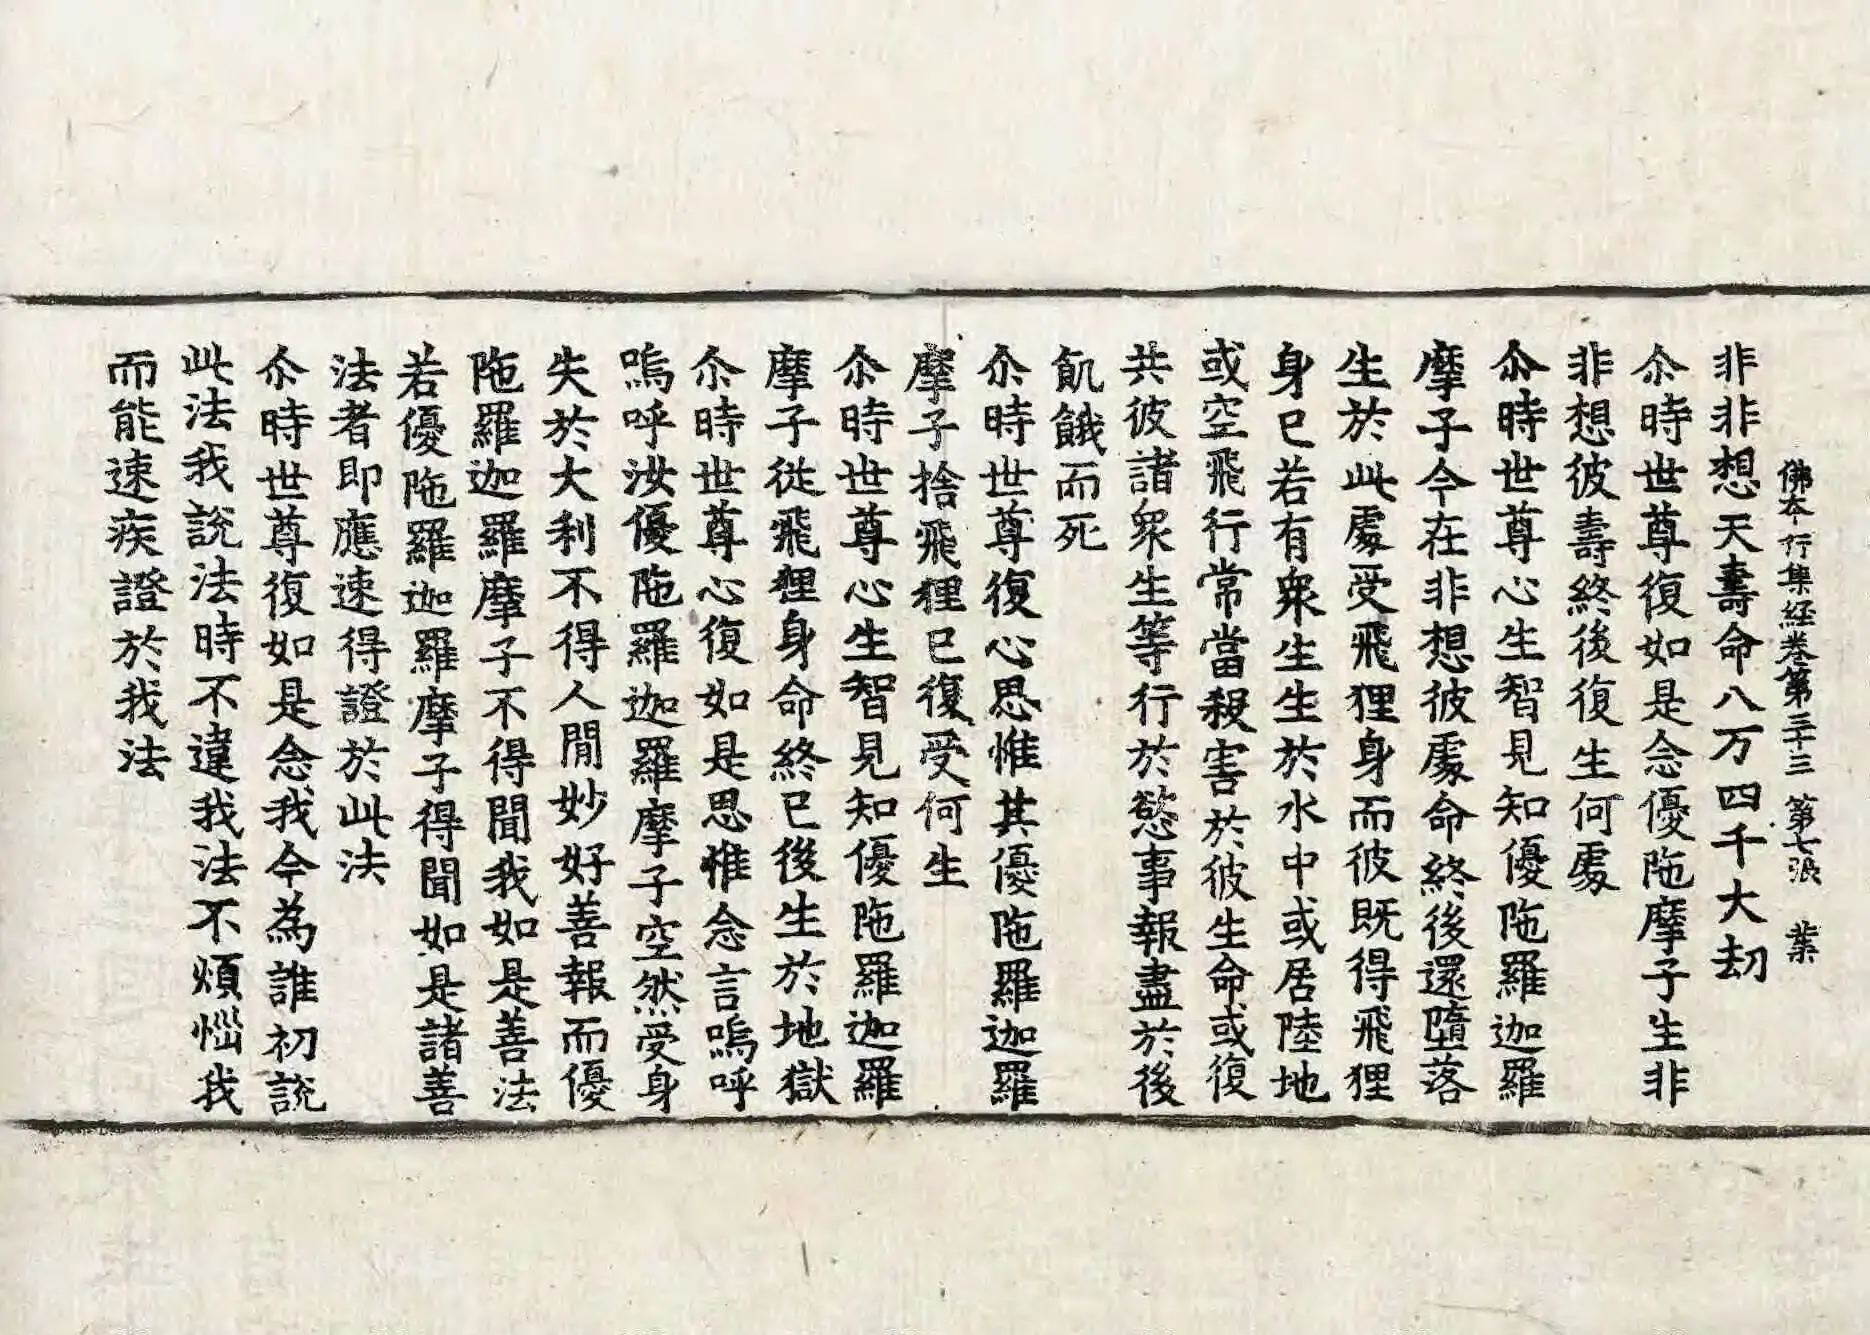 佛本行集経卷第三十三 第七張 菜
非非想天壽命八万四千大劫
尒時世尊復如是念優陁摩子生非
非想彼壽終後復生何處
尒時世尊心生智見知優陁羅迦羅
摩子今在非想彼處命終後還墮落
生於此處受飛狸身而彼既得飛狸
身已若有衆生生於水中或居陸地
或空飛行常當殺害於彼生命或復
共彼諸衆生等行於慾事報盡於後
飢餓而死
尒時世尊復心思惟其優陁羅迦羅
摩子捨飛狸已復受何生
尒時世尊心生智見知優陁羅迦羅
摩子從飛狸身命終已後生於地獄
尒時世尊心復如是思惟念言嗚呼
嗚呼汝優陁羅迦羅摩子空然受身
失於大利不得人閒妙好善報而優
陁羅迦羅摩子不得聞我如是善法
若優陁羅迦羅摩子得聞如是諸善
法者即應速得證於此法
尒時世尊復如是念我今為誰初說
此法我說法時不違我法不煩惱我
而能速疾證於我法